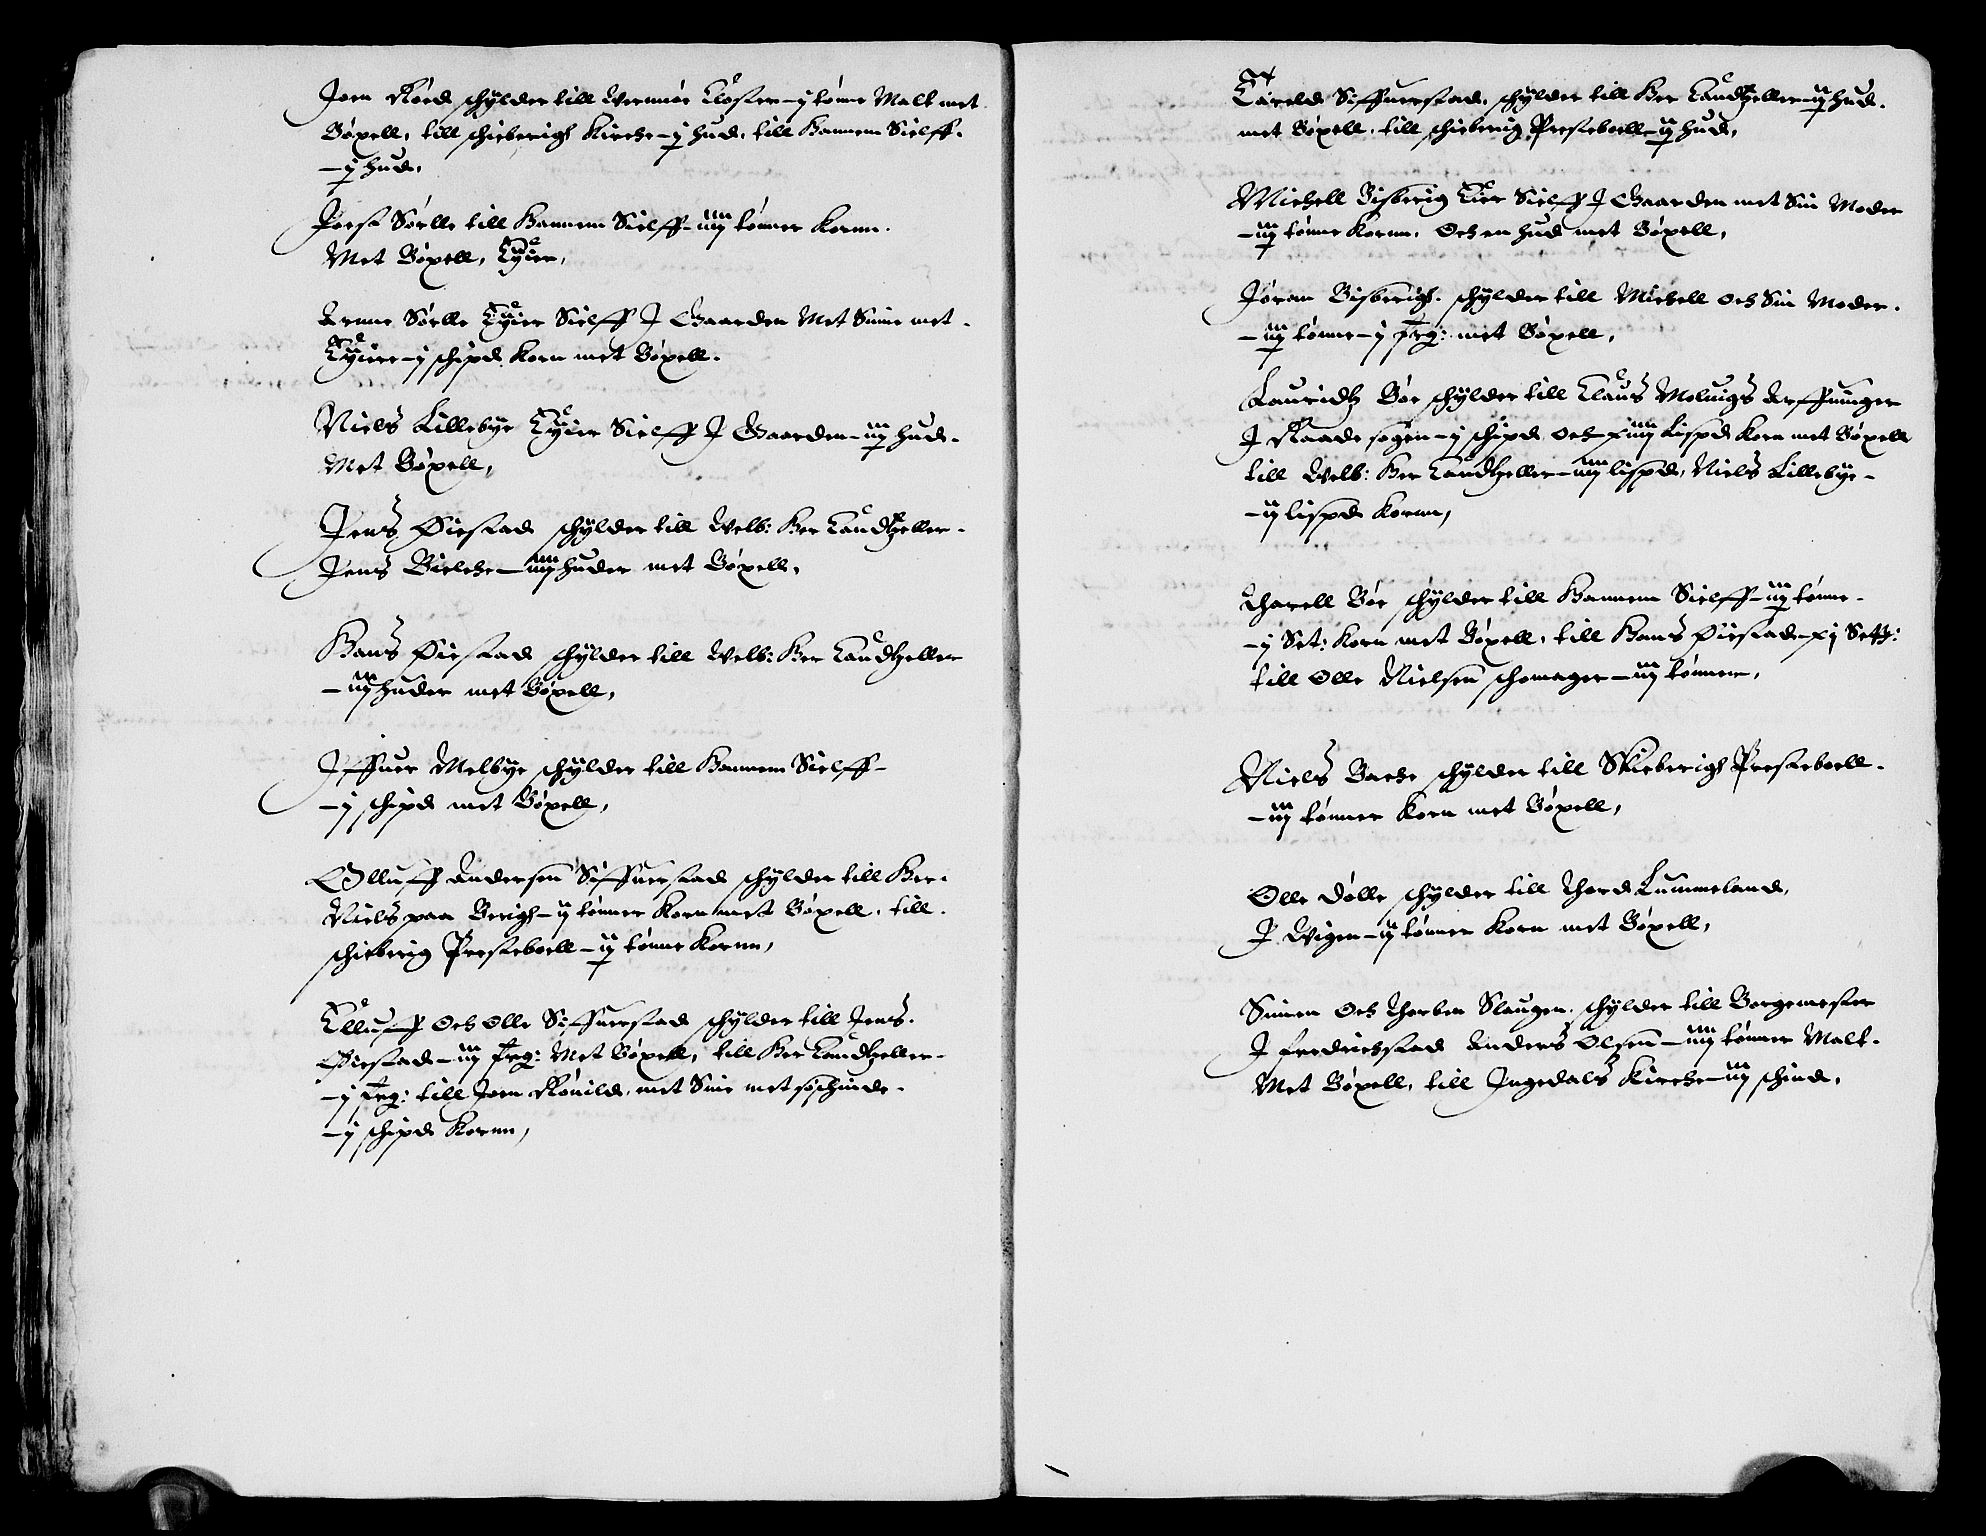 Joen Røed schylder till Wernnør Closter – j tønne Malt met
Bøxell, till schieberigh Kirche – j hud, till hannem Sielff
– j hud,
Poest Sørlle till hannem Sielff – iiij tønner Kornn.
Met Bøxell, Eyier,
Arnne Sørlle Eyier Sielff J Gaarden Met Sinne met
Eyiere – j schipd Korn met Bøxell.
Niels Lillebye Eyier Sielff J Gaarden – iij hud.
Met Bøxell,
Jens Øiestad schylder till Welb: Her Candtzeller
Jens Bielche – iiij huder met Bøxell,
Hans Øiestad schylder till Welb: Her Candtzeller
– iij huder met Bøxell,
Iffuer Melbye schylder till hannem Sielff
– j schipd met Bøxell,
Olluff Andersen Siffuerstad schylder till Her
Niels paa Berigh – ij tønner Korn met Bøxell, till
schieberig Presteboell – ij tønne Kornn,
Elluff och Olle Siffuerstad schylder till Jens
Øiestad – iij frg: Met Bøxell, till Her Candtzeller
– j frg: till Joen Rønild, met Sine metsøschinde
– j schipd Kornn,
Tarald Siffuerstad, schylder till Her Candtzeller – ij hud.
met Bøxell, till schieberig Presteboell – ij hud,
Michell Bisberig Eier Sielff J Gaarden met Sin Moder
– iij tønne Kornn, Och en hud met Bøxell,
Jøran Bisberigh, schylder till Michell och Sin Moder
– iij tønne – j frg: met Bøxell,
Lauridtz Bøe schylder till Claus Moluigs Arffuinger
J Raade sogen – j schipd och xiiij Lispd Korn met Bøxell
till Welb: Her Candtzeller – iiij lispd, Niels Lillebye
– ij lispd Kornn,
Tharell Bøe schylder till hannem Sielff – iij tønne
– j Set: Korn met Bøxell, till Hans Øiestad – xj Sett:
till Olle Nielsen schomager – iij tønner,
Niels Bache schylder till Skieberigh Presteboell
– iij tønner Korn met Bøxell,
Olle Dølle schylder till Thord Lummeland,
J Wigen – ij tønner Korn met Bøxell,
Simen och Thorben Slaugen, schylder till Borgemester
J fredrichstad Anders Olsen – iiij tønner Malt
Met Bøxell, till Ingedals Kirche – iij schind,